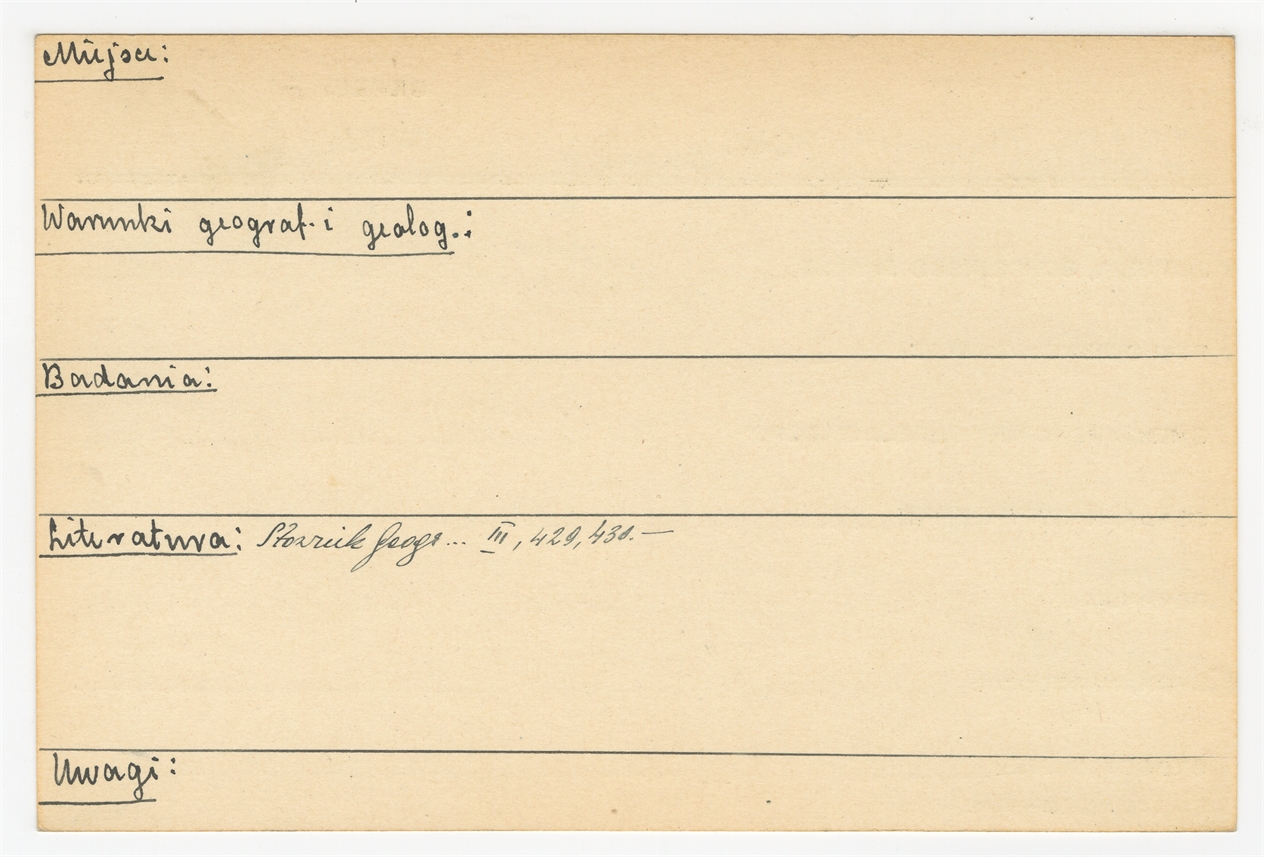 Miejsce:
Warunki geograf. i geolog.:
Badania:
Literatura: Słownik Geogr... III, 429, 430.—
Uwagi: